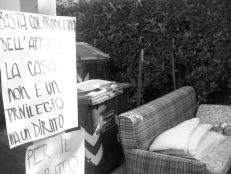 BASTA COL PROBLEMA
DELL'AFFITTO
LA CASA
NON È UN
PRIVILEGIO
MA UN DIRITTO
PER IL